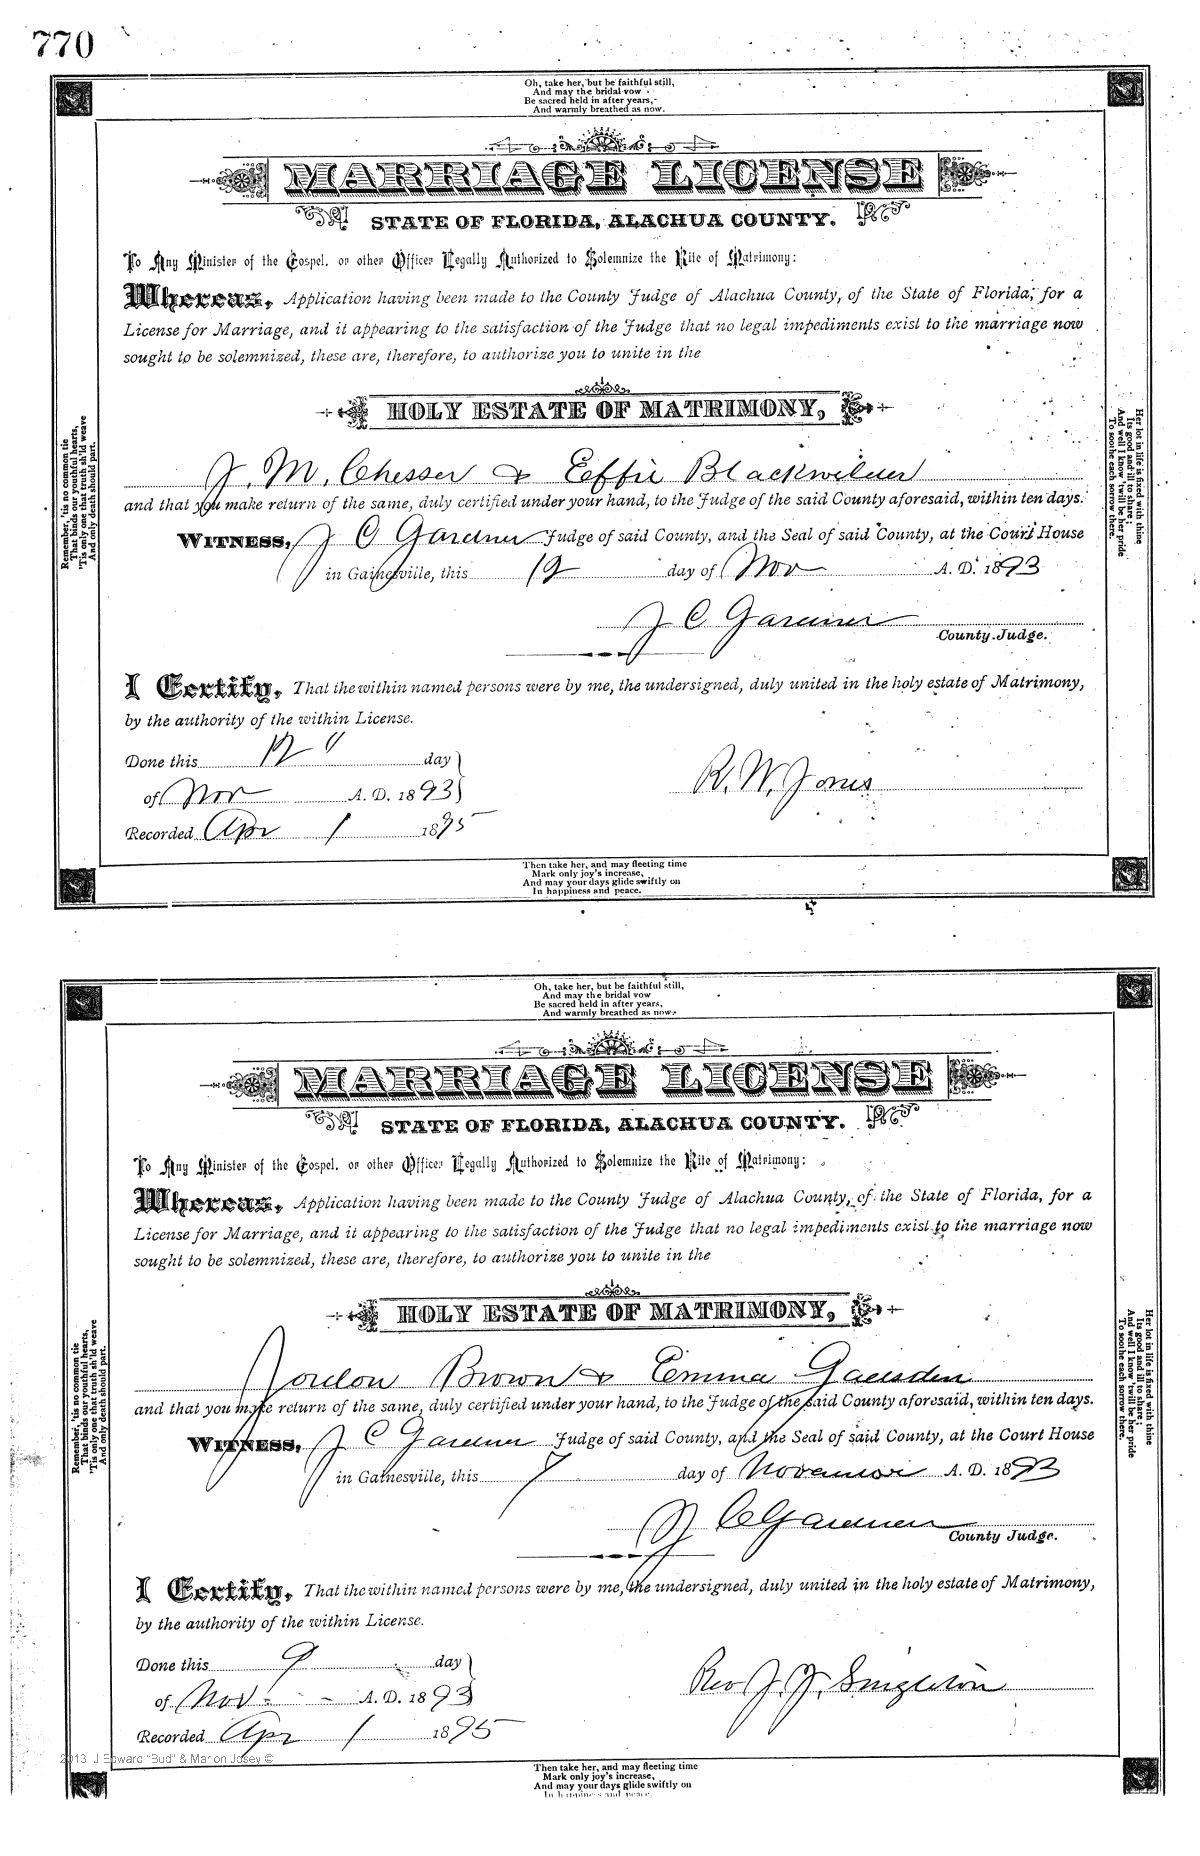 770
Oh, take her, but be faithful still,
And may the bridal vow
Be sacred held in after years,
And warmly breathed as now.
MARRIAGE LICENSE
STATE OF FLORIDA, ALACHUA COUNTY.
To Any Minister of the Gospel, or other Officer Legally Authorized to Solemnize the Rite of Matrimony:
Whereas, Application having been made to the County Judge of Alachua County, of the State of Florida, for a
License for Marriage, and it appearing to the satisfaction of the Judge that no legal impediments exist to the marriage now
sought to be solemnized, these are, therefore, to authorize you to unite in the
HOLY ESTATE OF MATRIMONY,
J. M. Chesser & Effie Blackwilder
and that you make return of the same, duly certified under your hand, to the Judge of the said County aforesaid, within ten days.
WITNESS, J C Gardner Judge of said County, and the Seal of said County, at the Court House
in Gainesville, this 12 day of Nov A. D. 1893
J C Gardner
County Judge.
I Certify, That the within named persons were by me, the undersigned, duly united in the holy estate of Matrimony,
by the authority of the within License.
Done this 12 " day
of Nov A. D. 1893
R. W. Jones
Recorded Apr 1 1895
Then take her, and may fleeting time
Mark only joy's increase,
And may your days glide swiftly on
In happiness and peace.
Remember, 'tis no common tie
That binds our youthful hearts,
'Tis only one that truth sh'ld weave
And only death should part.
Her lot in life is fixed with thine
Its good and ill to share;
And well I know 'twill be her pride
To soothe each sorrow there.
Oh, take her, but be faithful still,
And may the bridal vow
Be sacred held in after years,
And warmly breathed as now.
MARRIAGE LICENSE
STATE OF FLORIDA, ALACHUA COUNTY.
To Any Minister of the Gospel, or other Officer Legally Authorized to Solemnize the Rite of Matrimony:
Whereas, Application having been made to the County Judge of Alachua County, of the State of Florida, for a
License for Marriage, and it appearing to the satisfaction of the Judge that no legal impediments exist to the marriage now
sought to be solemnized, these are, therefore, to authorize you to unite in the
HOLY ESTATE OF MATRIMONY,
Jordon Brown & Emma Gadsden
and that you make return of the same, duly certified under your hand, to the Judge of the said County aforesaid, within ten days.
WITNESS, J C Gardner Judge of said County, and the Seal of said County, at the Court House
in Gainesville, this 7 day of November A. D. 1893
J C Gardner
County Judge.
I Certify, That the within named persons were by me, the undersigned, duly united in the holy estate of Matrimony,
by the authority of the within License.
Done this 9 day
of Nov - - A. D. 1893
Rev J. J. Singleton
Recorded Apr 1 1895
2013 J Edward "Bud" & Marion Josey ©
Then take her, and may fleeting time
Mark only joy's increase,
And may your days glide swiftly on
In happiness and peace.
Remember, 'tis no common tie
That binds our youthful hearts,
'Tis only one that truth sh'ld weave
And only death should part.
Her lot in life is fixed with thine
Its good and ill to share;
And well I know 'twill be her pride
To soothe each sorrow there.